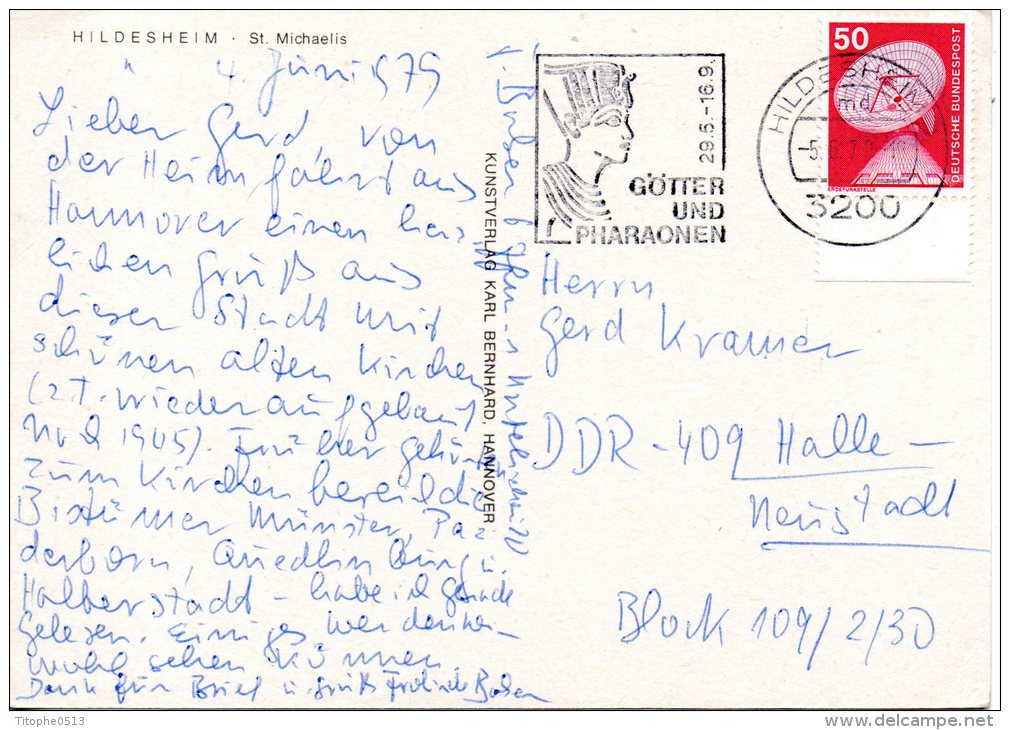 HILDESHEIM · St. Michaelis
" 4. Juni 1979
Lieber Gerd, von
der Heimfahrt aus
Hannover einen herz
lichen Gruß aus
dieser Stadt mit
schönen alten Kirchen
(z T. wieder aufgebaut
nach 1945). Früher gehörten
zum Kirchenbereich die
Bistümer Münster, Pa
derborn, Quedlinburg u.
Halberstadt – habe ich gerade
gelesen. Einiges werden wir
wohl sehen können.
Dank für Brief u. Grüße
KUNSTVERLAG KARL BERNHARD, HANNOVER
29.5.–16.9.
GÖTTER
UND
PHARAONEN
HILDESHEIM
md
-5.6.79
3200
50
DEUTSCHE BUNDESPOST
ERDEFUNKSTELLE
Herrn
Gerd Kramer
DDR – 409 Halle –
Neustadt
Block 109/2/30
Titophe0513
www.delcampe.net